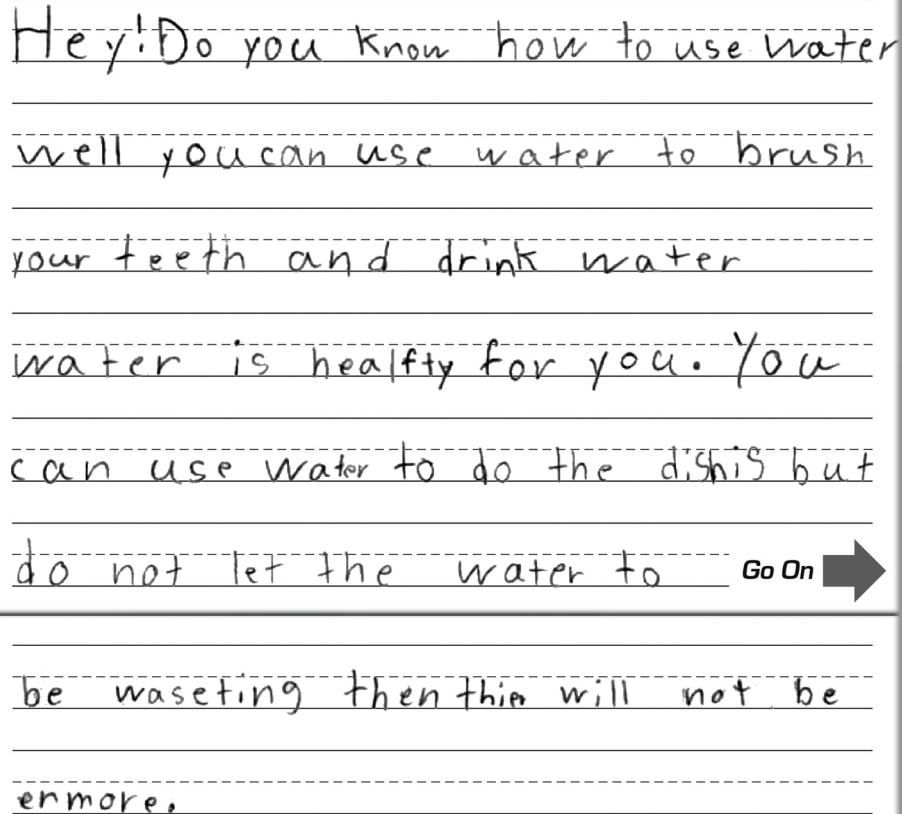 Hey! Do you know how to use water
well you can use water to brush
your teeth and drink water
water is healfty for you. You
can use water to do the dishis but
do not let the water to
Go On
be waseting then thin will not be
enmore.